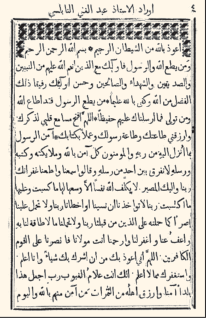 ٤ اوراد الاستاذ عبد الغني النابلسي
أعوذ بالله من الشيطان الرجيم بسم الله الرحمن الرحيم
ومن يطع الله والرسول فاولئك مع الذين انعم الله عليهم من النبيين
والصديقين والشهداء والصالحين وحسن أولئك رفيقا ذلك
الفضل من الله وكفى بالله عليما من يطع الرسول فقد اطاع الله
ومن تولى فما ارسلناك عليهم حفيظا اللهم افتح مسامع قلبي لذكرك
وارزقني طاعتك وطاعة رسولك وعملا بكتابك آمن الرسول
بما انزل اليه من ربه والمؤمنون كل آمن بالله وملائكته وكتبه
ورسله لا نفرق بين احد من رسله وقالوا سمعنا واطعنا غفرانك
ربنا واليك المصير لا يكلف الله نفسا الا وسعها لها ما كسبت وعليها
ما اكتسبت ربنا لا تؤاخذنا ان نسينا او اخطأنا ربنا ولا تحمل علينا
اصرا كما حملته على الذين من قبلنا ربنا ولا تحملنا ما لا طاقة لنا به
واعف عنا واغفر لنا وارحمنا انت مولانا فانصرنا على القوم
الكافرين اللهم اني اعوذ بك من ان اشرك بك شيأ وانا اعلم
واستغفرك لما لا اعلم انك انت علام الغيوب رب اجعل هذا
بلدا آمنا وارزق أهله من الثمرات من آمن منهم بالله واليوم